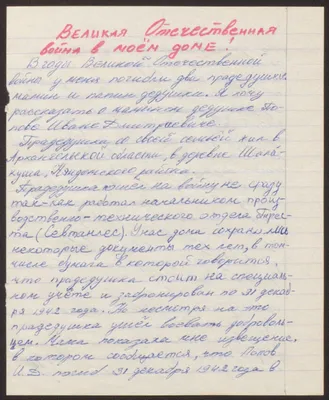 Великая Отечественная
война в моём доме.
В годы Великой Отечественной
войны у меня погибли два прадедушки,
мамин и папин дедушка. Я хочу
рассказать о мамином дедушке По-
пове Иване Дмитриевиче.
Прадедушка со своей семьёй жил в
Архангельской области, в деревне Шала-
куша, Няндомского района.
Прадедушка пошёл на войну не сразу
так-как работал начальником произ-
водственно-технического отдела Трес-
та (Севтранлес). У нас дома сохранились
некоторые документы тех лет, в том
числе бумага в которой говорится,
что прадедушка стоит на специаль-
ном учёте и забронирован по 31 декаб-
ря 1942 года. Но несмотря на это
прадедушка ушёл воевать доброволь-
цем. Мама показала мне извещение,
в котором сообщается, что Попов
И.Д. погиб 31 декабря 1942 года в